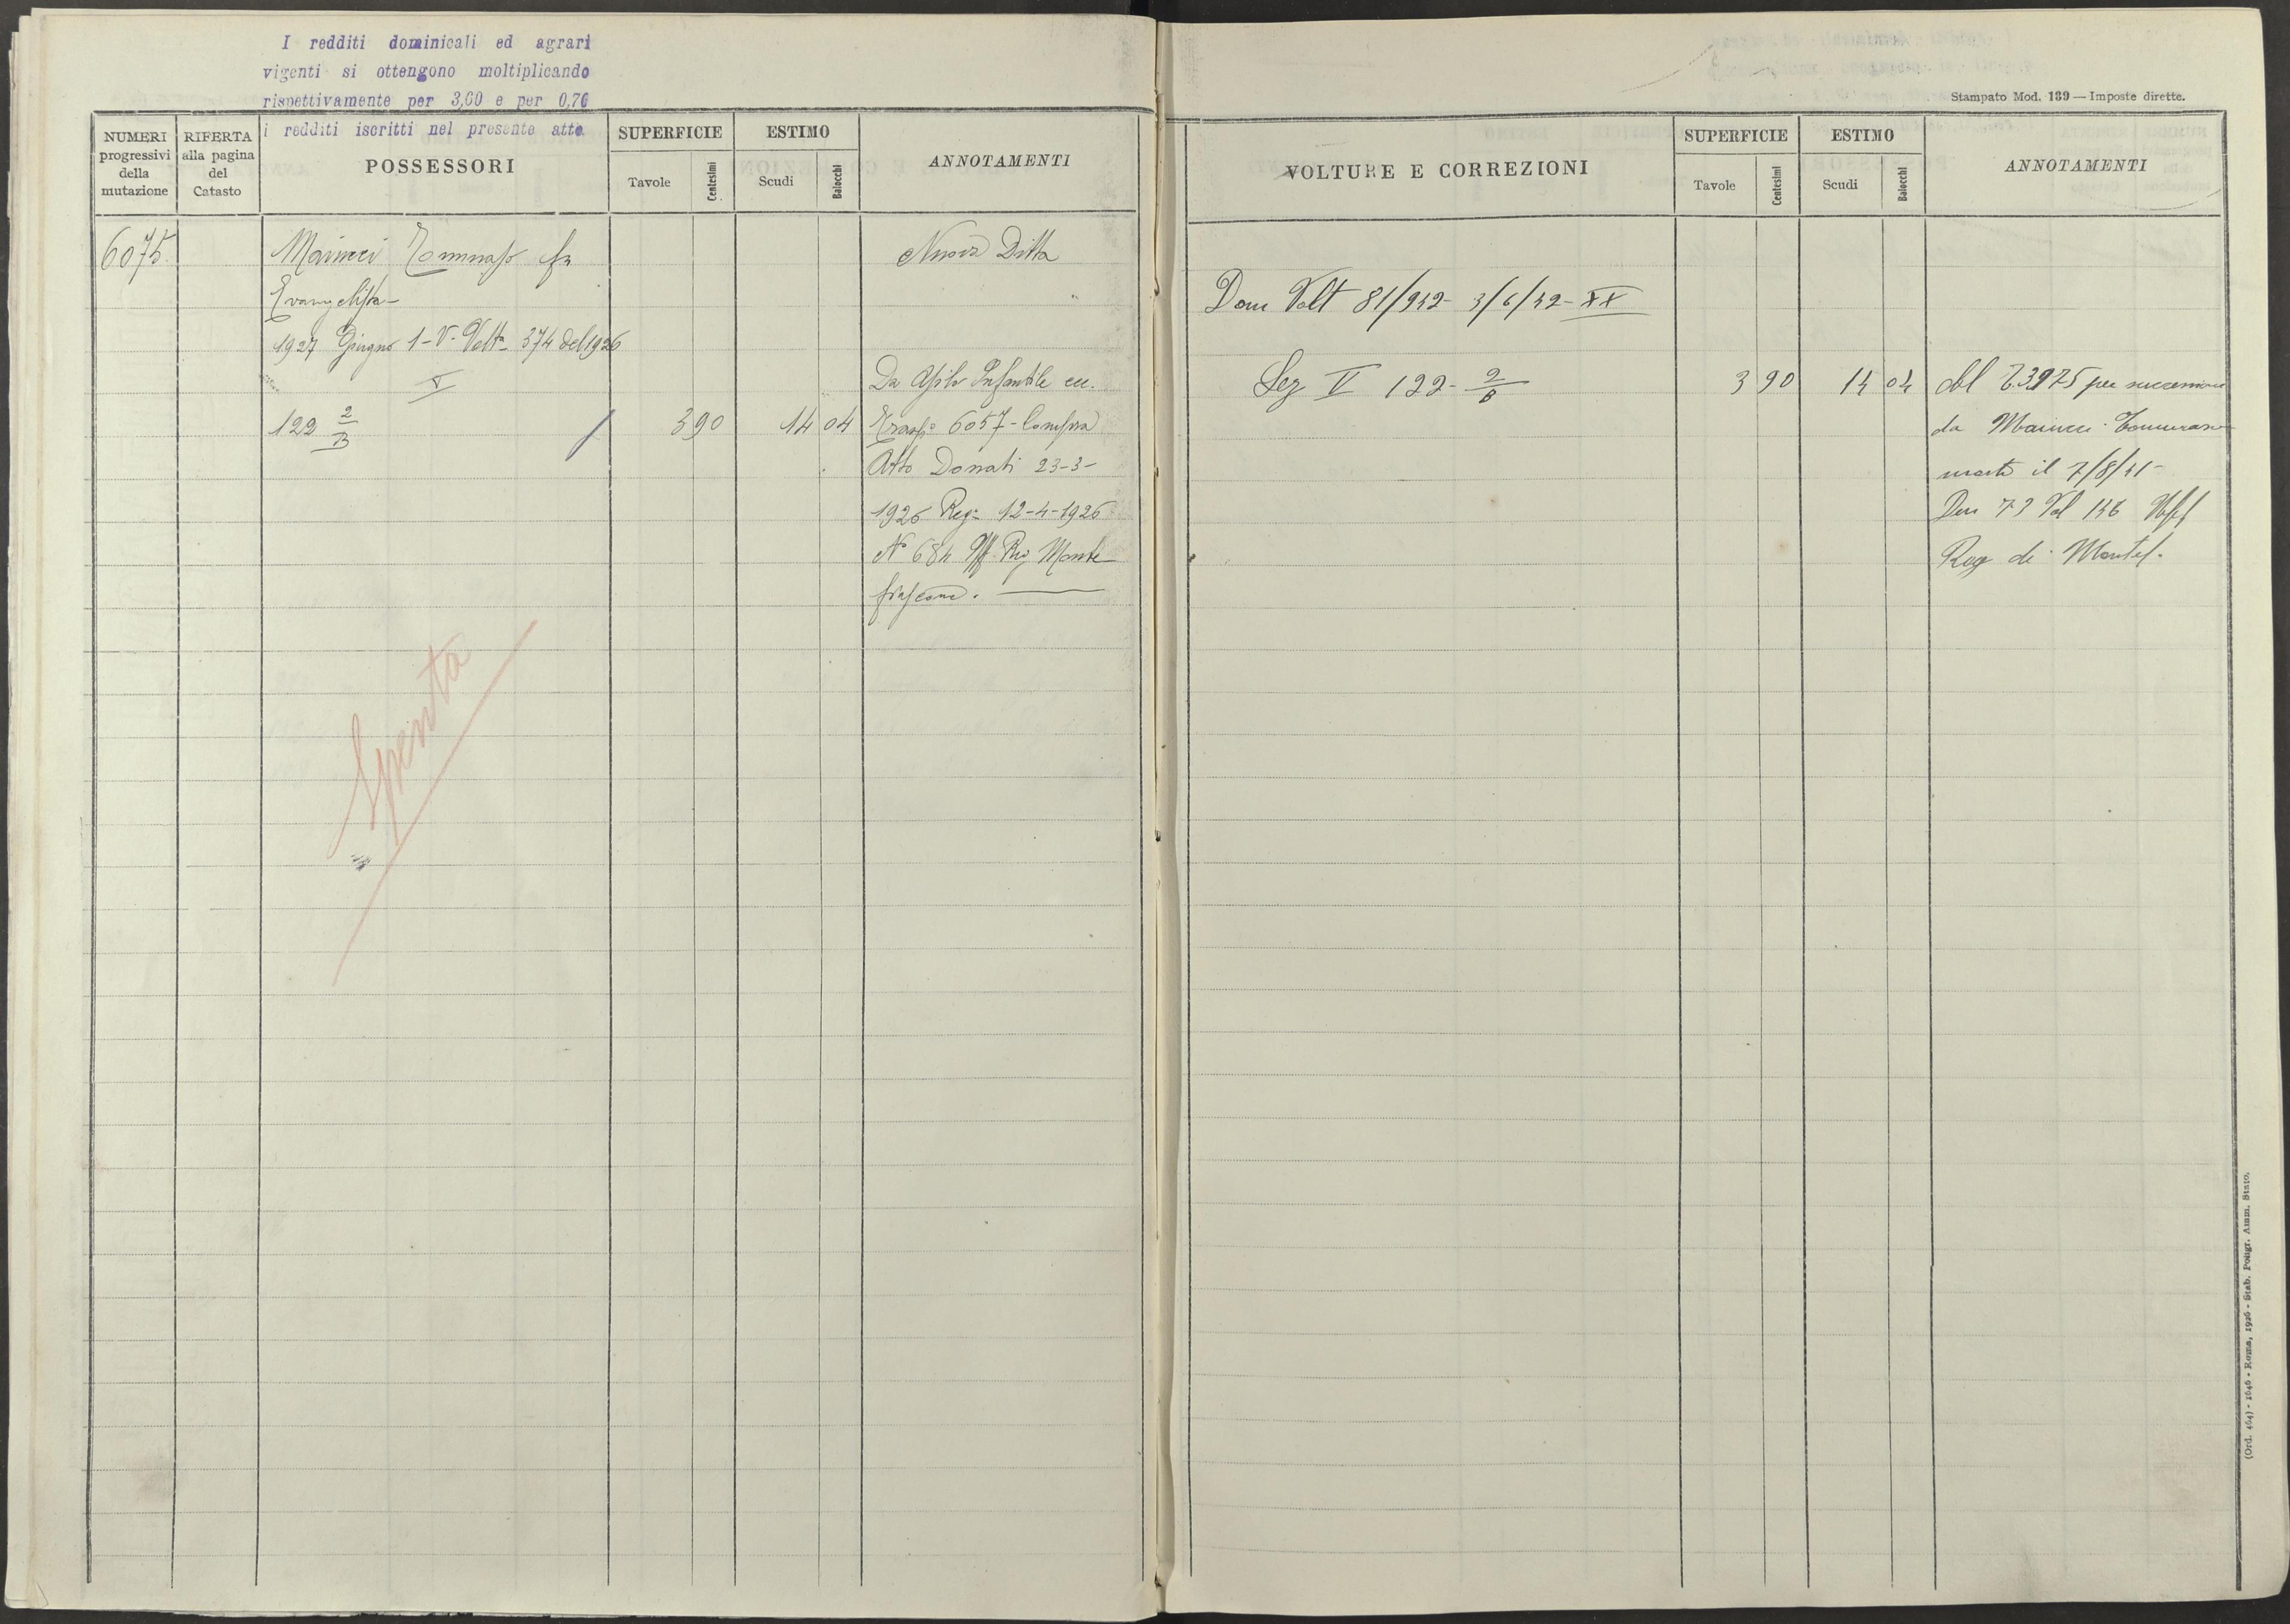 I redditi dominicali ed agrari
vigenti si ottengono moltiplicando
rispettivamente per 3,60 e per 0,76
i redditi iscritti nel presente atto
NUMERI
progressivi
della
mutazione
RIFERTA
alla pagina
del
Catasto
POSSESSORI
SUPERFICIE
Tavole
Centesimi
ESTIMO
Scudi
Baiocchi
ANNOTAMENTI
6075
Mainucci Tommaso fu
Evangelista
1927 Giugno 1-V- Volt 374 del 1926
V
122 2/B 3 90 14 04
Nuova Ditta
Da Asilo Infantile
6057 - Compra
Atto Donati 23-3-
1926 Reg 12-4-1926
N° 684 Uff Reg Monte
fiascone.
Spenta
Stampato Mod. 139 — Imposte dirette.
VOLTURE E CORREZIONI
SUPERFICIE
Tavole
Centesimi
ESTIMO
Scudi
Baiocchi
ANNOTAMENTI
Dom Volt 81/942 - 3/6/42 - XX
Sez V 122 - 2/B 3 90 14 04
Al 73975 per successione
da Mainucci Tommaso
morto il 7/8/41 -
Den 73 Vol 146 Uff
Reg di Montef.
(Ord. 464) - 1646 - Roma, 1926 - Stab. Poligr. Amm. Stato.